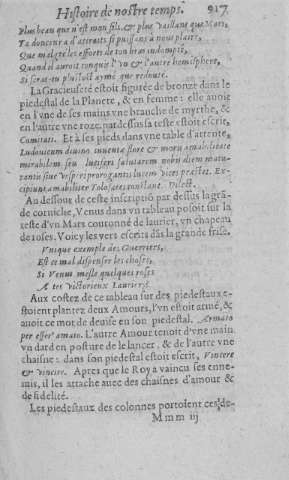 Histoire de nostre temps. 917
Plus beau que n'est mon fils, & plus vaillant que Mars,
Ta douceur a d'attraits si puissans à nous plaire,
Que malgré les efforts de ton bras indompté,
Quand il auroit conquis l'vn & l'autre hemisphere,
Si seras-tu plustost aymé que redouté.
La Gracieuseté estoit figurée de bronze dans le
piedestal de la Planete, & en femme: elle auoit
en l'vne de ses mains vne branche de myrthe, &
en l'autre vne roze, par dessus sa teste estoit escrit,
Comitati. Et à ses pieds dans vne table d'attente,
Ludouicum diuino inuentæ flore & morũ amabilitate
mirabilem seu luciferi salutarem nobis diem
vices præstet.
cipiunt amabilitate Tolosates postlant. Dicest.
Au dessous de ceste inscriptiõ par dessus la grã-
de corniche, Venus dans vn tableau posoit sur la
teste d'vn Mars couronné de laurier, vn chapeau
de roses. Voicy les vers escrits dãs la grande frise.
Vnique exemple des Guerriers,
Est ce mal dispenser les choses,
Si Venus mesle quelques roses
A tes victorieux Lauriers?
Aux costez de ce tableau sur des piedestaux e-
stoient plantez deux Amours, l'vn estoit armé, &
auoit ce mot de deuise en son piedestal. Armato
per esser' amato. L'autre Amour tenoit d'vne main
vn dard en posture de le lancer, & de l'autre vne
chaisne: dans son piedestal estoit escrit, Vincere
& vincire. Apres que le Roy a vaincu ses enne-
mis, il les attache auec des chaisnes d'amour &
de fidelité.
Les piedestaux des colonnes portoient ces de-
Mmm iij